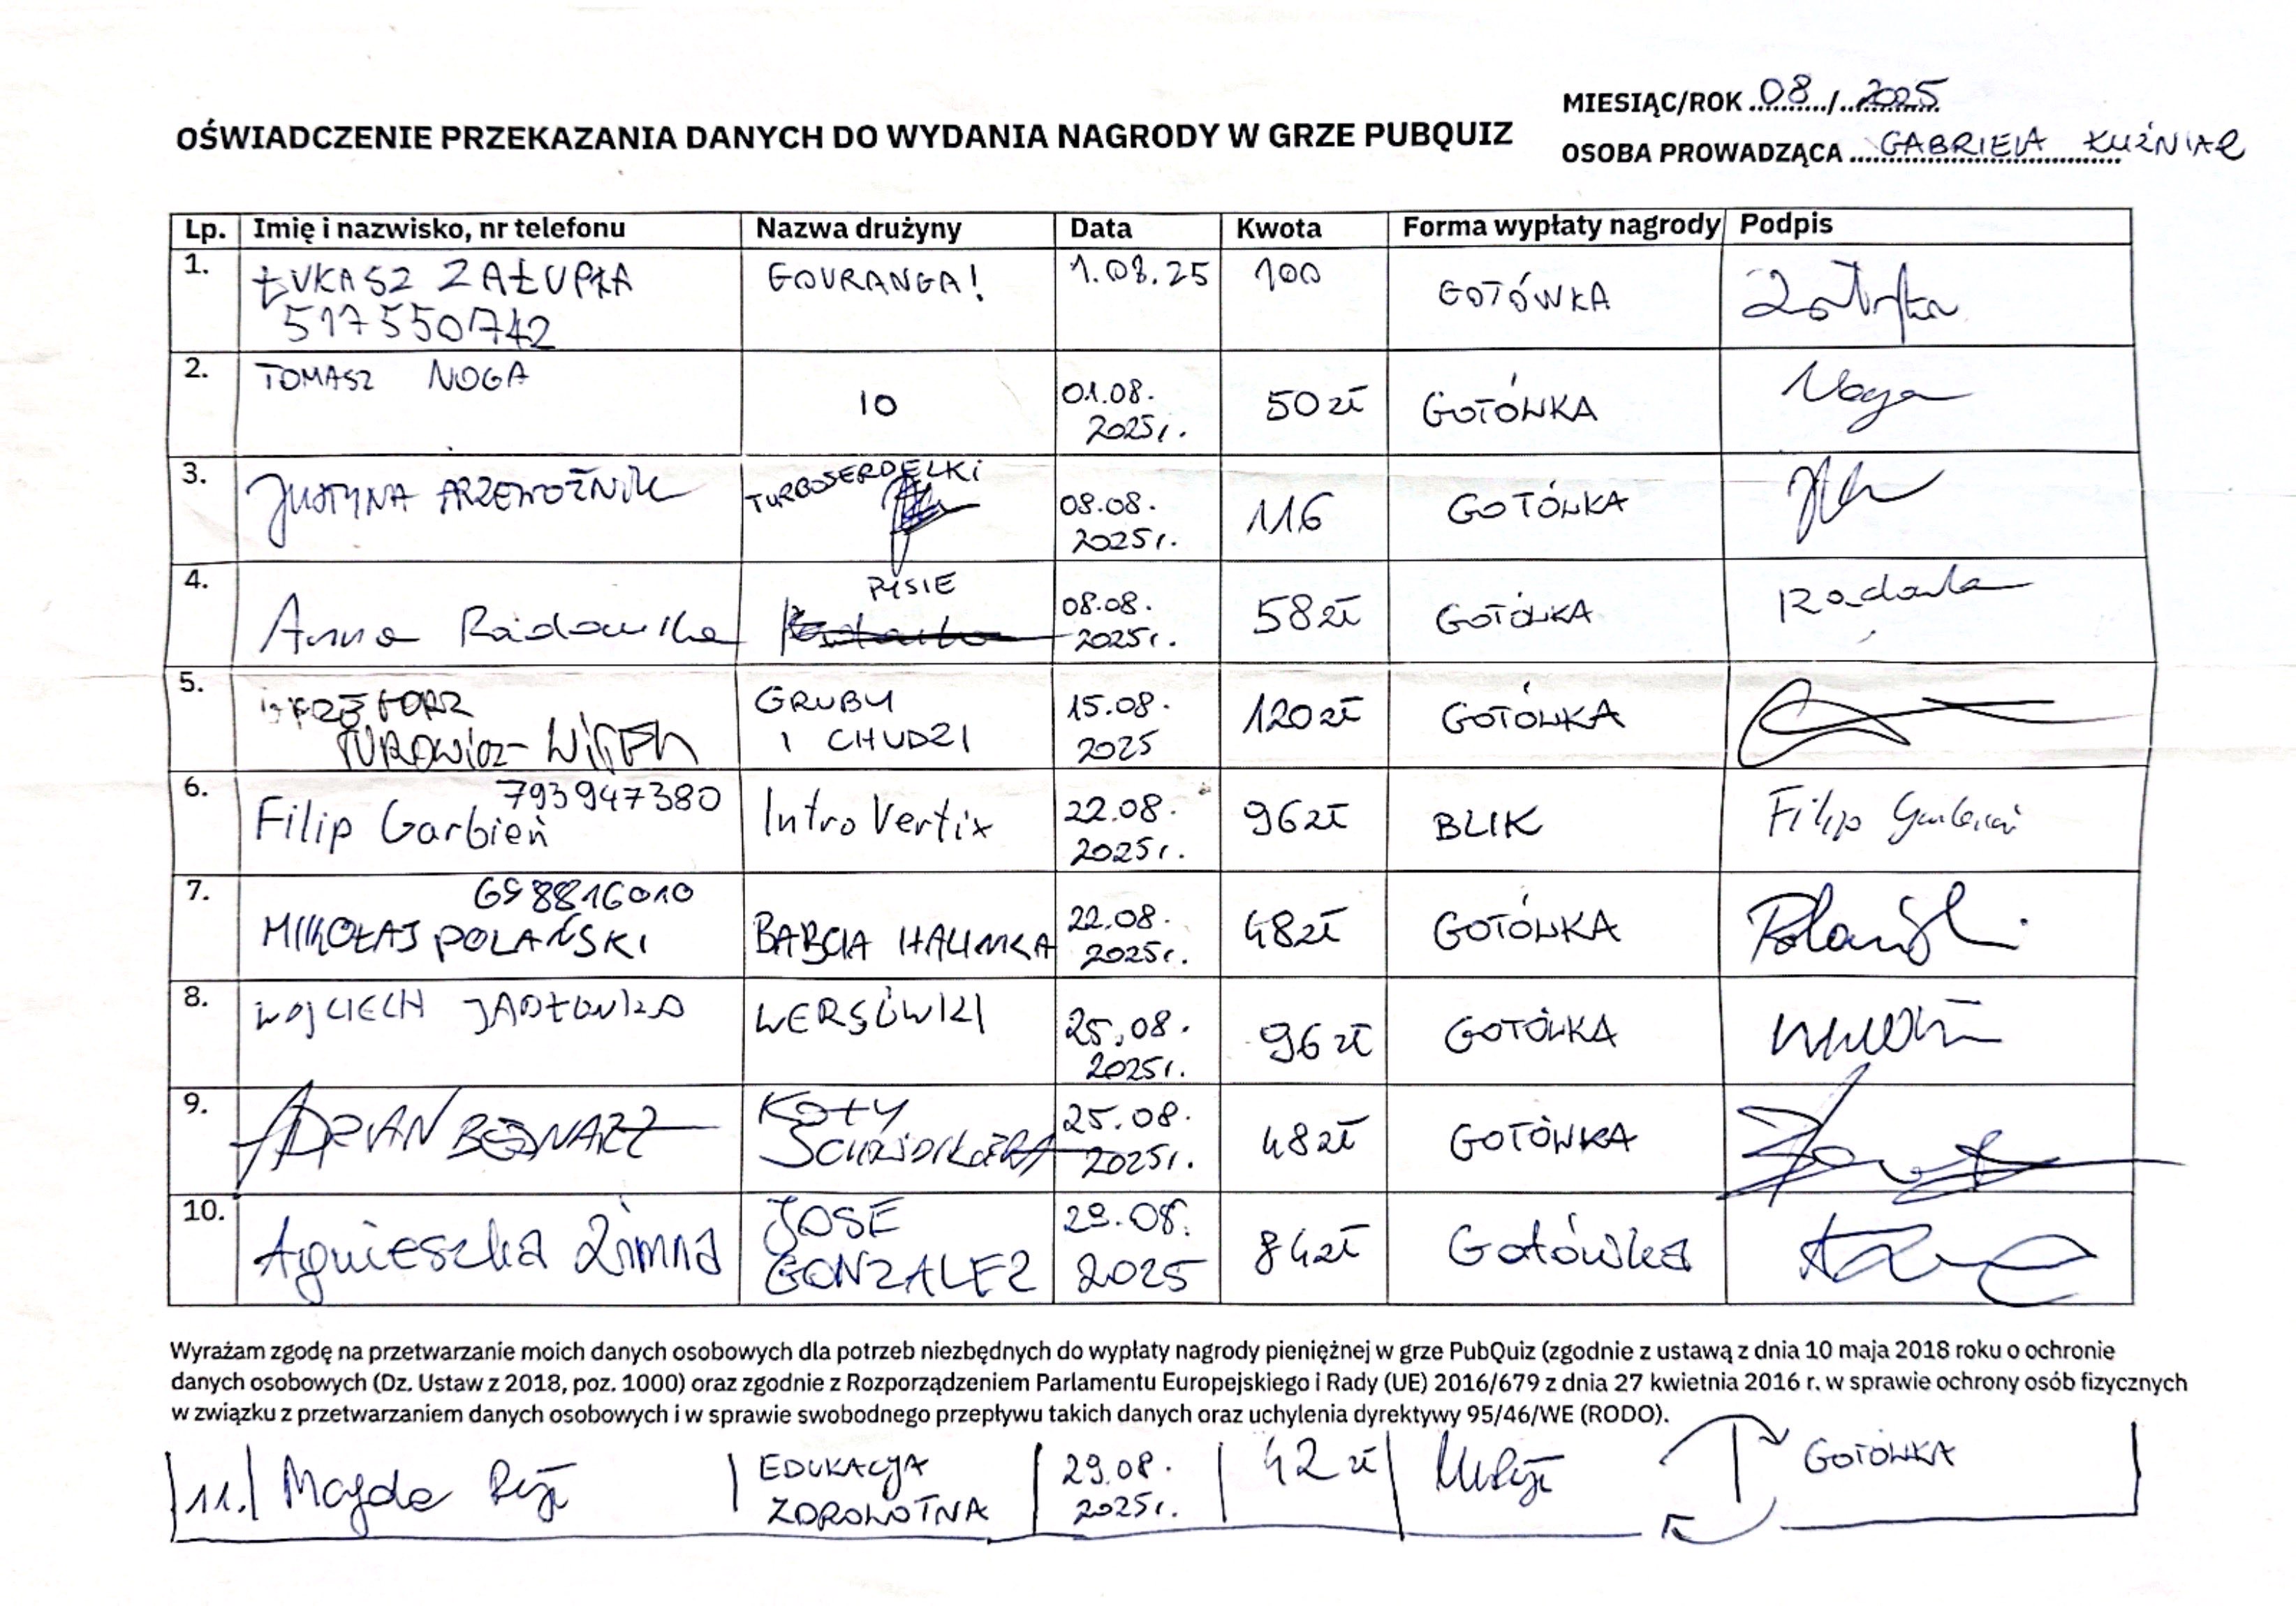 MIESIĄC/ROK 08 / 2025
OŚWIADCZENIE PRZEKAZANIA DANYCH DO WYDANIA NAGRODY W GRZE PUBQUIZ
OSOBA PROWADZĄCA GABRIELA KUŹNIAR
Lp. Imię i nazwisko, nr telefonu Nazwa drużyny Data Kwota Forma wypłaty nagrody Podpis
1. ŁUKASZ ZAŁUPKA GOURANGA! 1.08.25 100 GOTÓWKA
517550742
2. TOMASZ NOGA 10 01.08. 50 zł GOTÓWKA Noga
2025r.
3. JUSTYNA PRZEWOŹNIK TURBOSERDELKI 08.08. 116 GOTÓWKA
2025r.
4. Anna Radowska PYSIE 08.08. 58 zł GOTÓWKA
2025r.
5. GRZEGORZ GRUBY 15.08. 120 zł GOTÓWKA
TUROWICZ- I CHUDZI 2025
6. 793947380
Filip Garbień Intro Vertix 22.08. 96 zł BLIK Filip Garbień
2025r.
7. 698816010
MIKOŁAJ POLAŃSKI BABCIA HALINKA 22.08. 48 zł GOTÓWKA Polański
2025r.
8. WOJCIECH WERSÓWKI 25.08. 96 zł GOTÓWKA
2025r.
9. ADRIAN BEDNARZ KOTY 25.08. 48 zł GOTÓWKA
SCHRÖDINGERA 2025r.
10. Agnieszka Zimna JOSE 29.08. 84 zł Gotówka
GONZALEZ 2025
Wyrażam zgodę na przetwarzanie moich danych osobowych dla potrzeb niezbędnych do wypłaty nagrody pieniężnej w grze PubQuiz (zgodnie z ustawą z dnia 10 maja 2018 roku o ochronie
danych osobowych (Dz. Ustaw z 2018, poz. 1000) oraz zgodnie z Rozporządzeniem Parlamentu Europejskiego i Rady (UE) 2016/679 z dnia 27 kwietnia 2016 r. w sprawie ochrony osób fizycznych
w związku z przetwarzaniem danych osobowych i w sprawie swobodnego przepływu takich danych oraz uchylenia dyrektywy 95/46/WE (RODO).
11. Magda EDUKACJA 29.08. 42 zł GOTÓWKA
ZDROWOTNA 2025r.